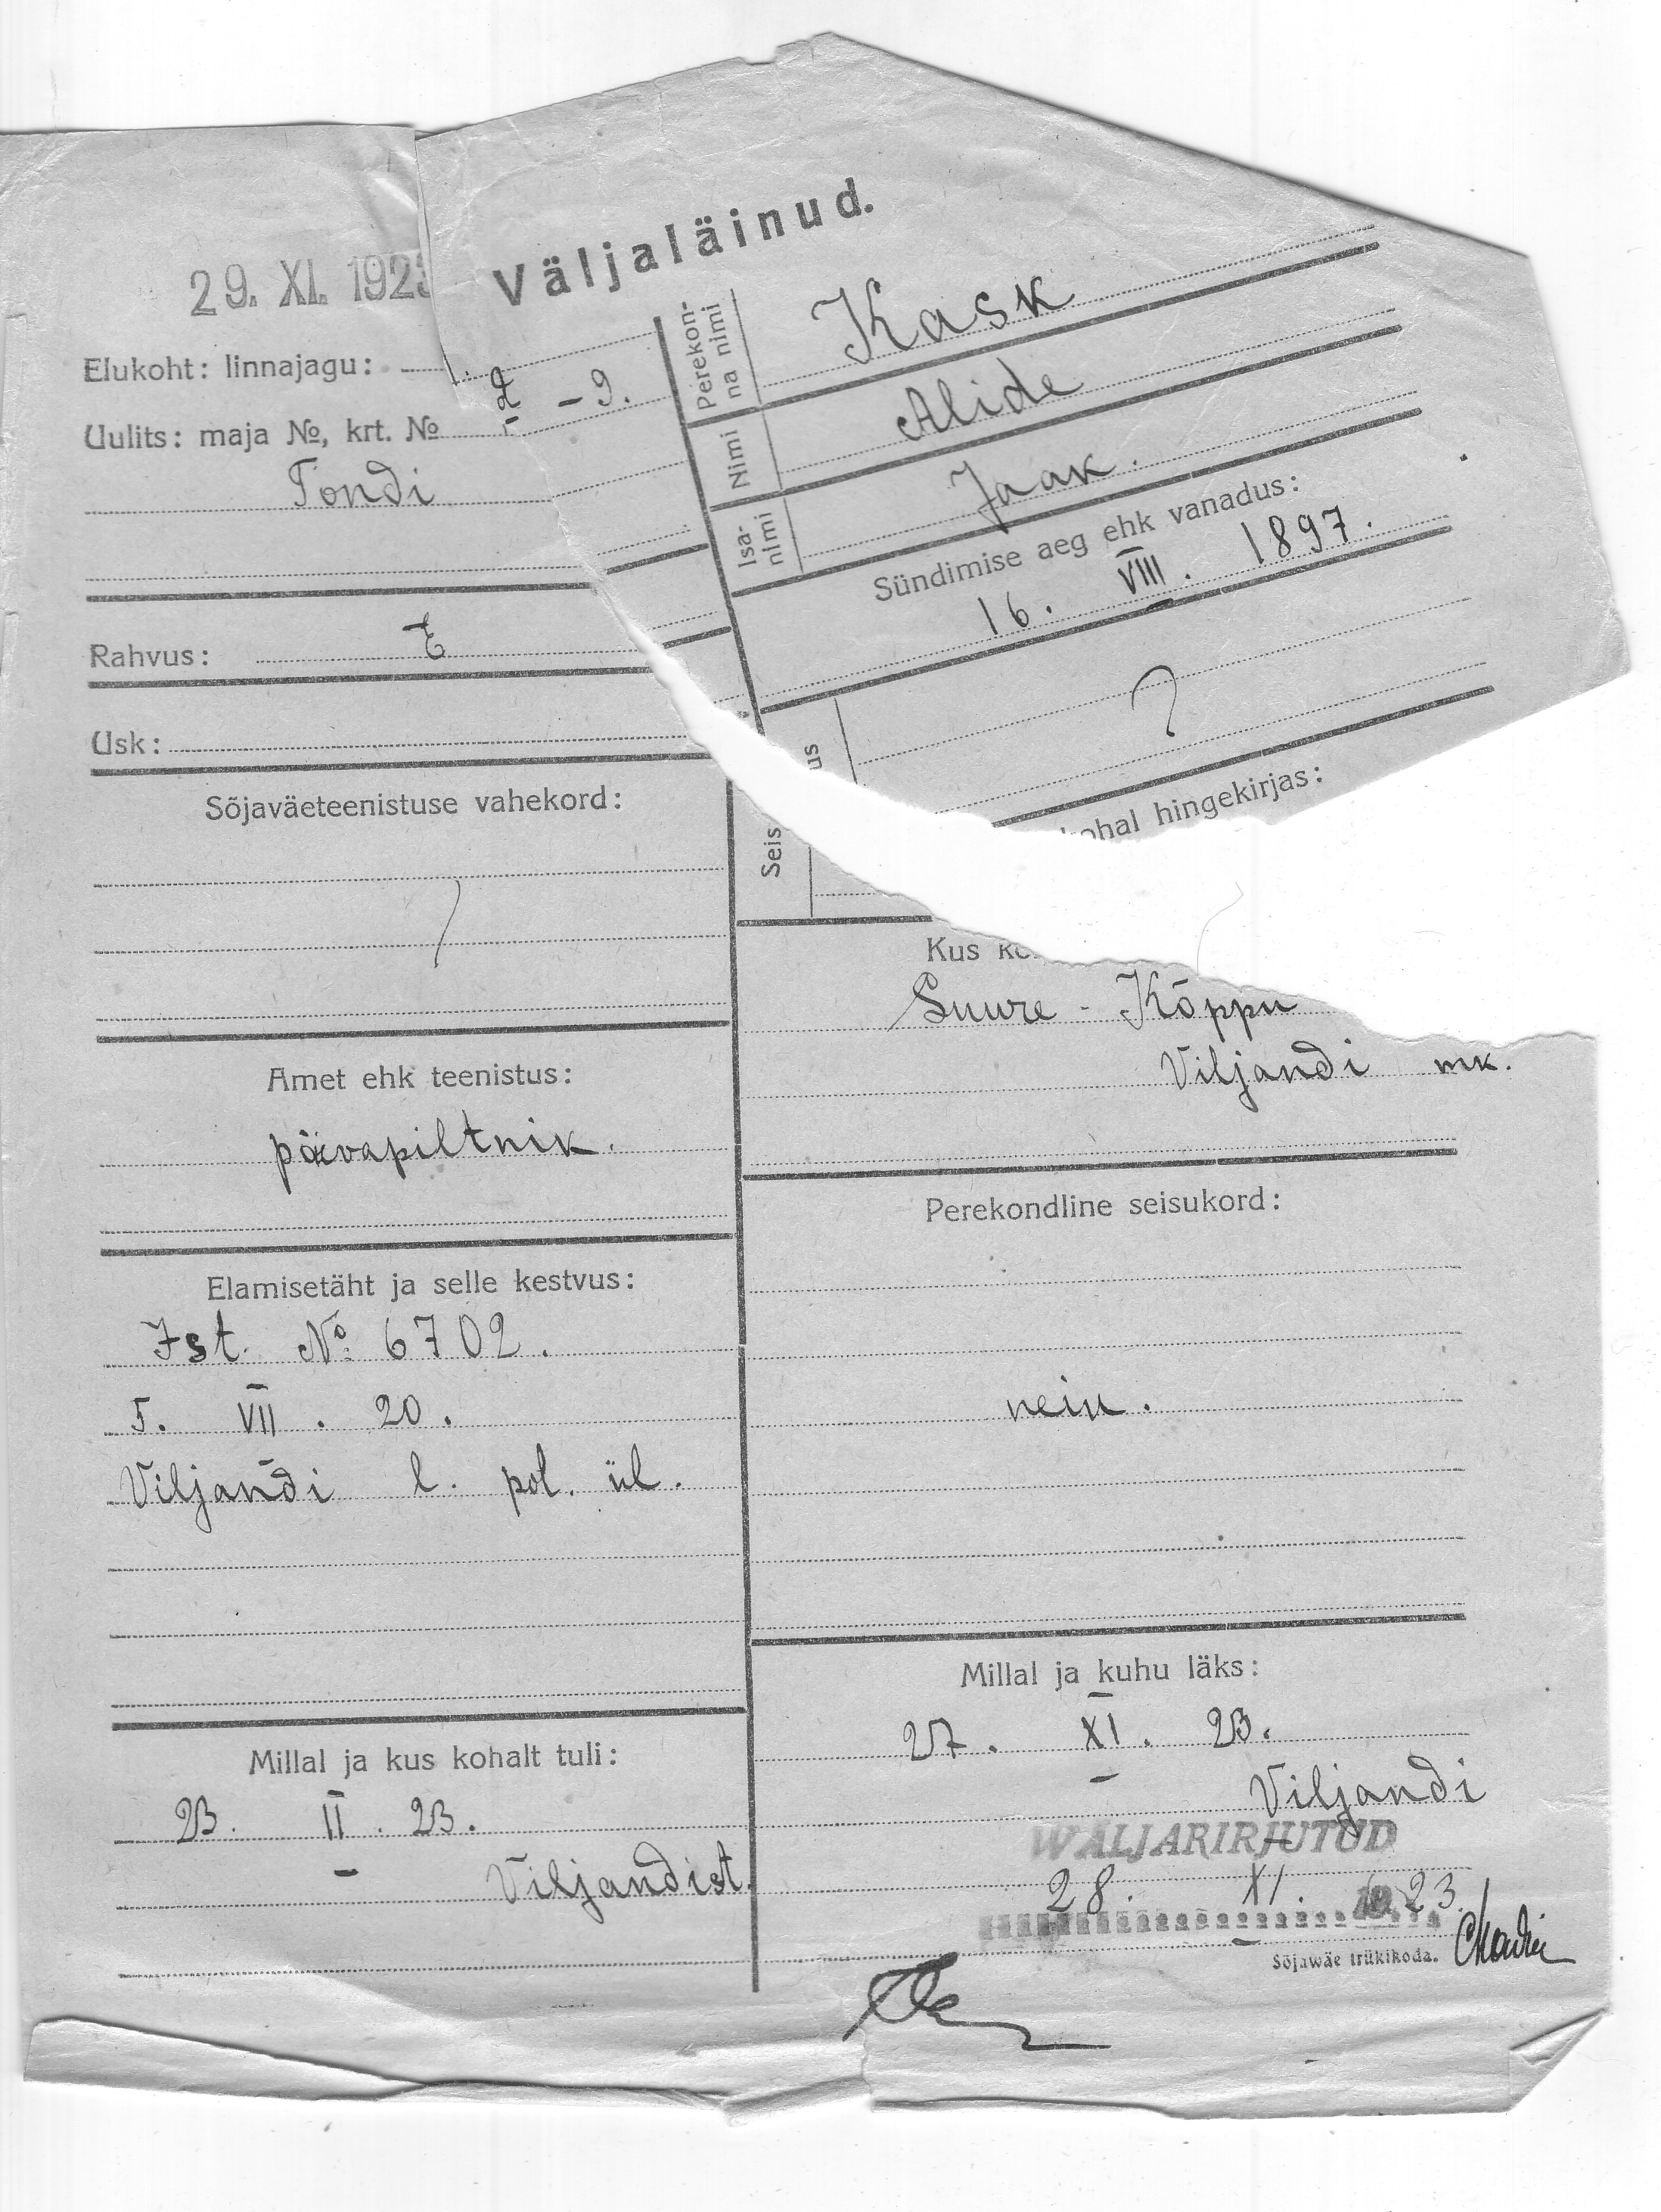 Väljaläinud.
29. XI. 192
Elukoht: linnajagu:
Uulits: maja №, krt. № 2 - 9.
Tondi
Rahvus: E
Usk:
Sõjaväeteenistuse vahekord:
Amet ehk teenistus:
päevapiltnik.
Elamisetäht ja selle kestvus:
Ist. № 6702.
5. VII. 20.
Viljandi l. pol. ül.
Millal ja kus kohalt tuli:
23. II. 23.
Viljandist.
Perekon-
na nimi
Kask
Nimi
Alide
Isa-
nimi
Jaak.
Sündimise aeg ehk vanadus:
16. VIII. 1897.
Seis
us
?
Kus ko
kohal hingekirjas:
Suure-Kõppu
Viljandi mk.
Perekondline seisukord:
neiu.
Millal ja kuhu läks:
27. XI. 23.
Viljandi
WÄLJARIRJUTUD
28. XI. 1923.
Sõjawäe trükikoda.